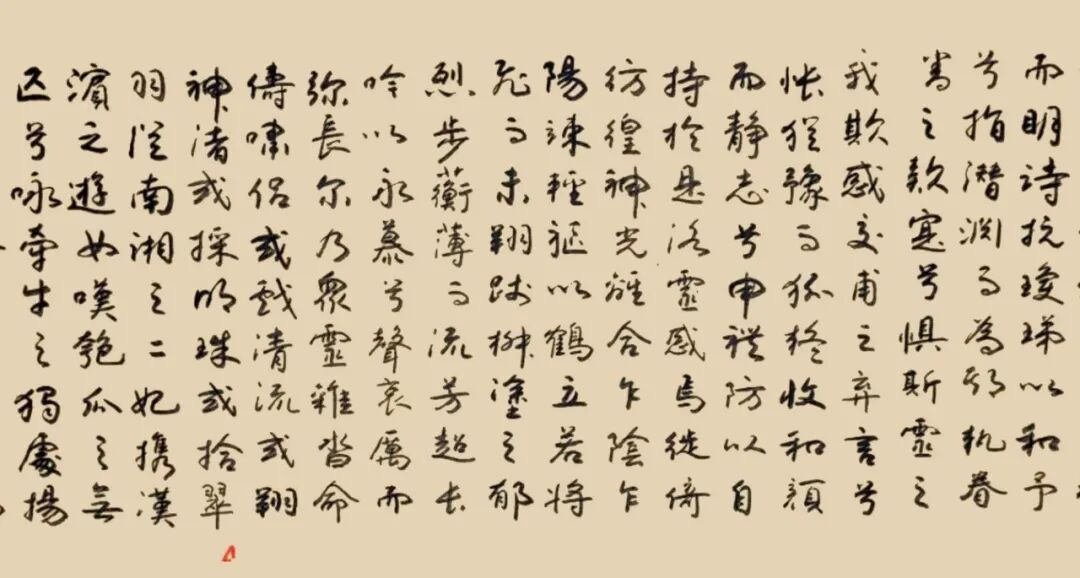 而明詩抗瓊珶以和予
兮指潛渊而為期執眷
眷之款寔兮懼斯靈之
我欺感交甫之弃言兮
悵猶豫而狐疑收和顔
而静志兮申禮防以自
持於是洛靈感焉徙倚
彷徨神光離合乍陰乍
陽竦輕軀以鶴立若將
飛而未翔踐椒塗之郁
烈步蘅薄而流芳超長
吟以永慕兮聲哀厲而
弥長尔乃衆靈雜沓命
儔嘯侣或戲清流或翔
神渚或採明珠或拾翠
羽從南湘之二妃攜漢
濱之遊女嘆匏瓜之無
匹兮咏牽牛之獨處揚